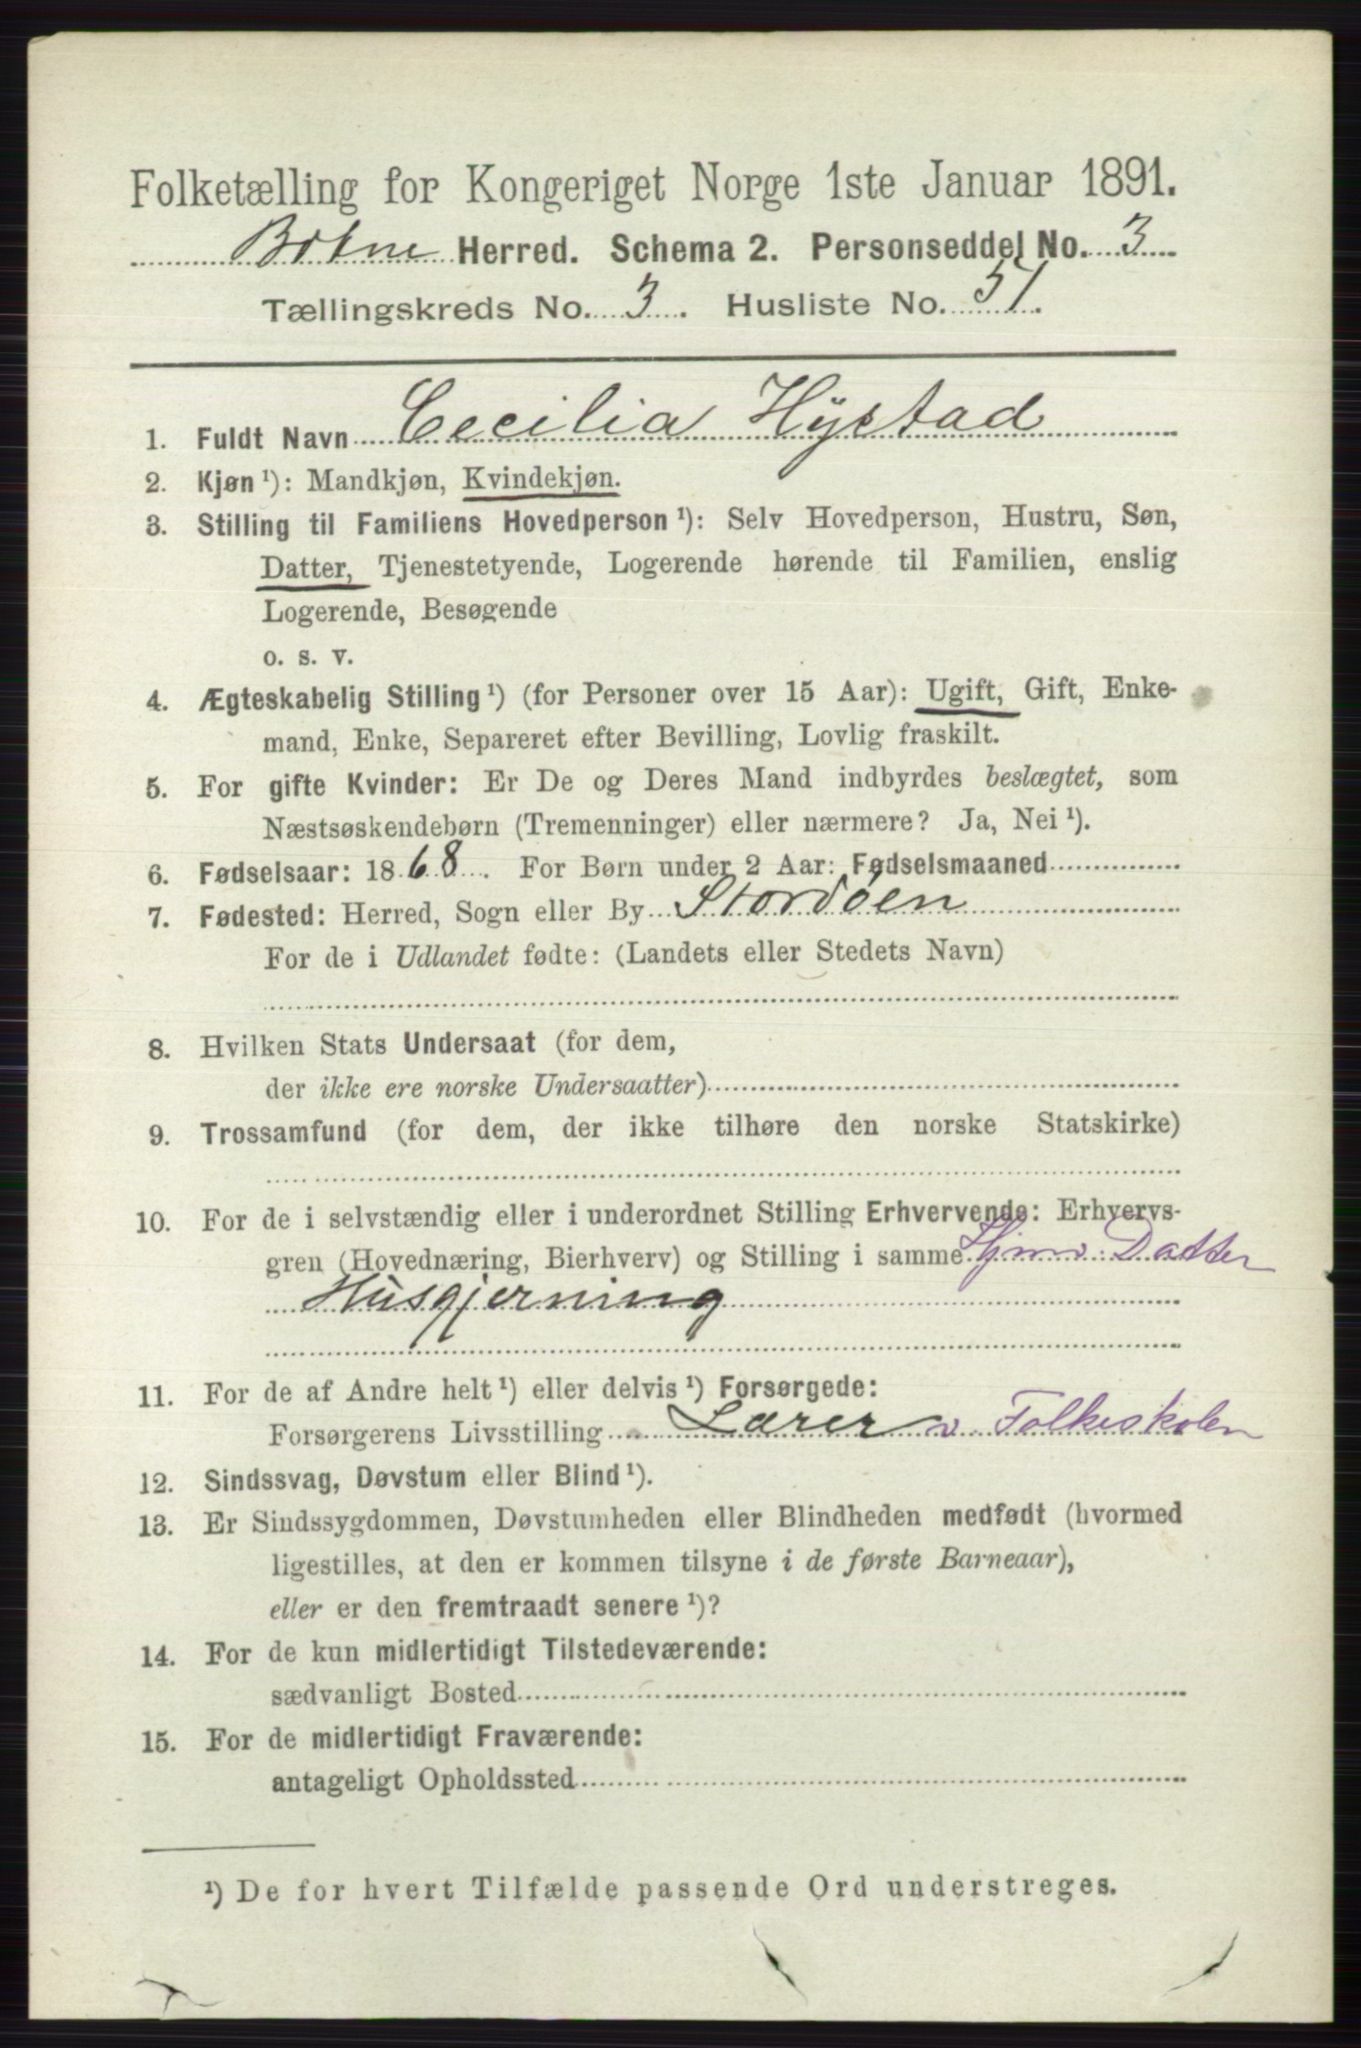 Folketælling for Kongeriget Norge 1ste Januar 1891.
Botne Herred. Schema 2. Personseddel No. 3
Tællingskreds No. 3. Husliste No. 51.
1. Fuldt Navn Cecilia Hystad
2. Kjøn ¹): Mandkjøn, Kvindekjøn.
3. Stilling til Familiens Hovedperson ¹): Selv Hovedperson, Hustru, Søn,
Datter, Tjenestetyende, Logerende hørende til Familien, enslig
Logerende, Besøgende
o. s. v.
4. Ægteskabelig Stilling ¹) (for Personer over 15 Aar): Ugift, Gift, Enke-
mand, Enke, Separeret efter Bevilling, Lovlig fraskilt.
5. For gifte Kvinder: Er De og Deres Mand indbyrdes beslægtet, som
Næstsøskendebørn (Tremenninger) eller nærmere? Ja, Nei ¹).
6. Fødselsaar: 1868. For Børn under 2 Aar: Fødselsmaaned
7. Fødested: Herred, Sogn eller By Stordøen
For de i Udlandet fødte: (Landets eller Stedets Navn)
8. Hvilken Stats Undersaat (for dem,
der ikke ere norske Undersaatter)
9. Trossamfund (for dem, der ikke tilhøre den norske Statskirke)
10. For de i selvstændig eller i underordnet Stilling Erhvervende: Erhvervs-
gren (Hovednæring, Bierhverv) og Stilling i samme Hjmv. Datter
Husgjerning
11. For de af Andre helt ¹) eller delvis ¹) Forsørgede:
Forsørgerens Livsstilling Lærer v. Folkeskolen
12. Sindssvag, Døvstum eller Blind ¹).
13. Er Sindssygdommen, Døvstumheden eller Blindheden medfødt (hvormed
ligestilles, at den er kommen tilsyne i de første Barneaar),
eller er den fremtraadt senere ¹)?
14. For de kun midlertidigt Tilstedeværende:
sædvanligt Bosted
15. For de midlertidigt Fraværende:
antageligt Opholdssted
¹) De for hvert Tilfælde passende Ord understreges.